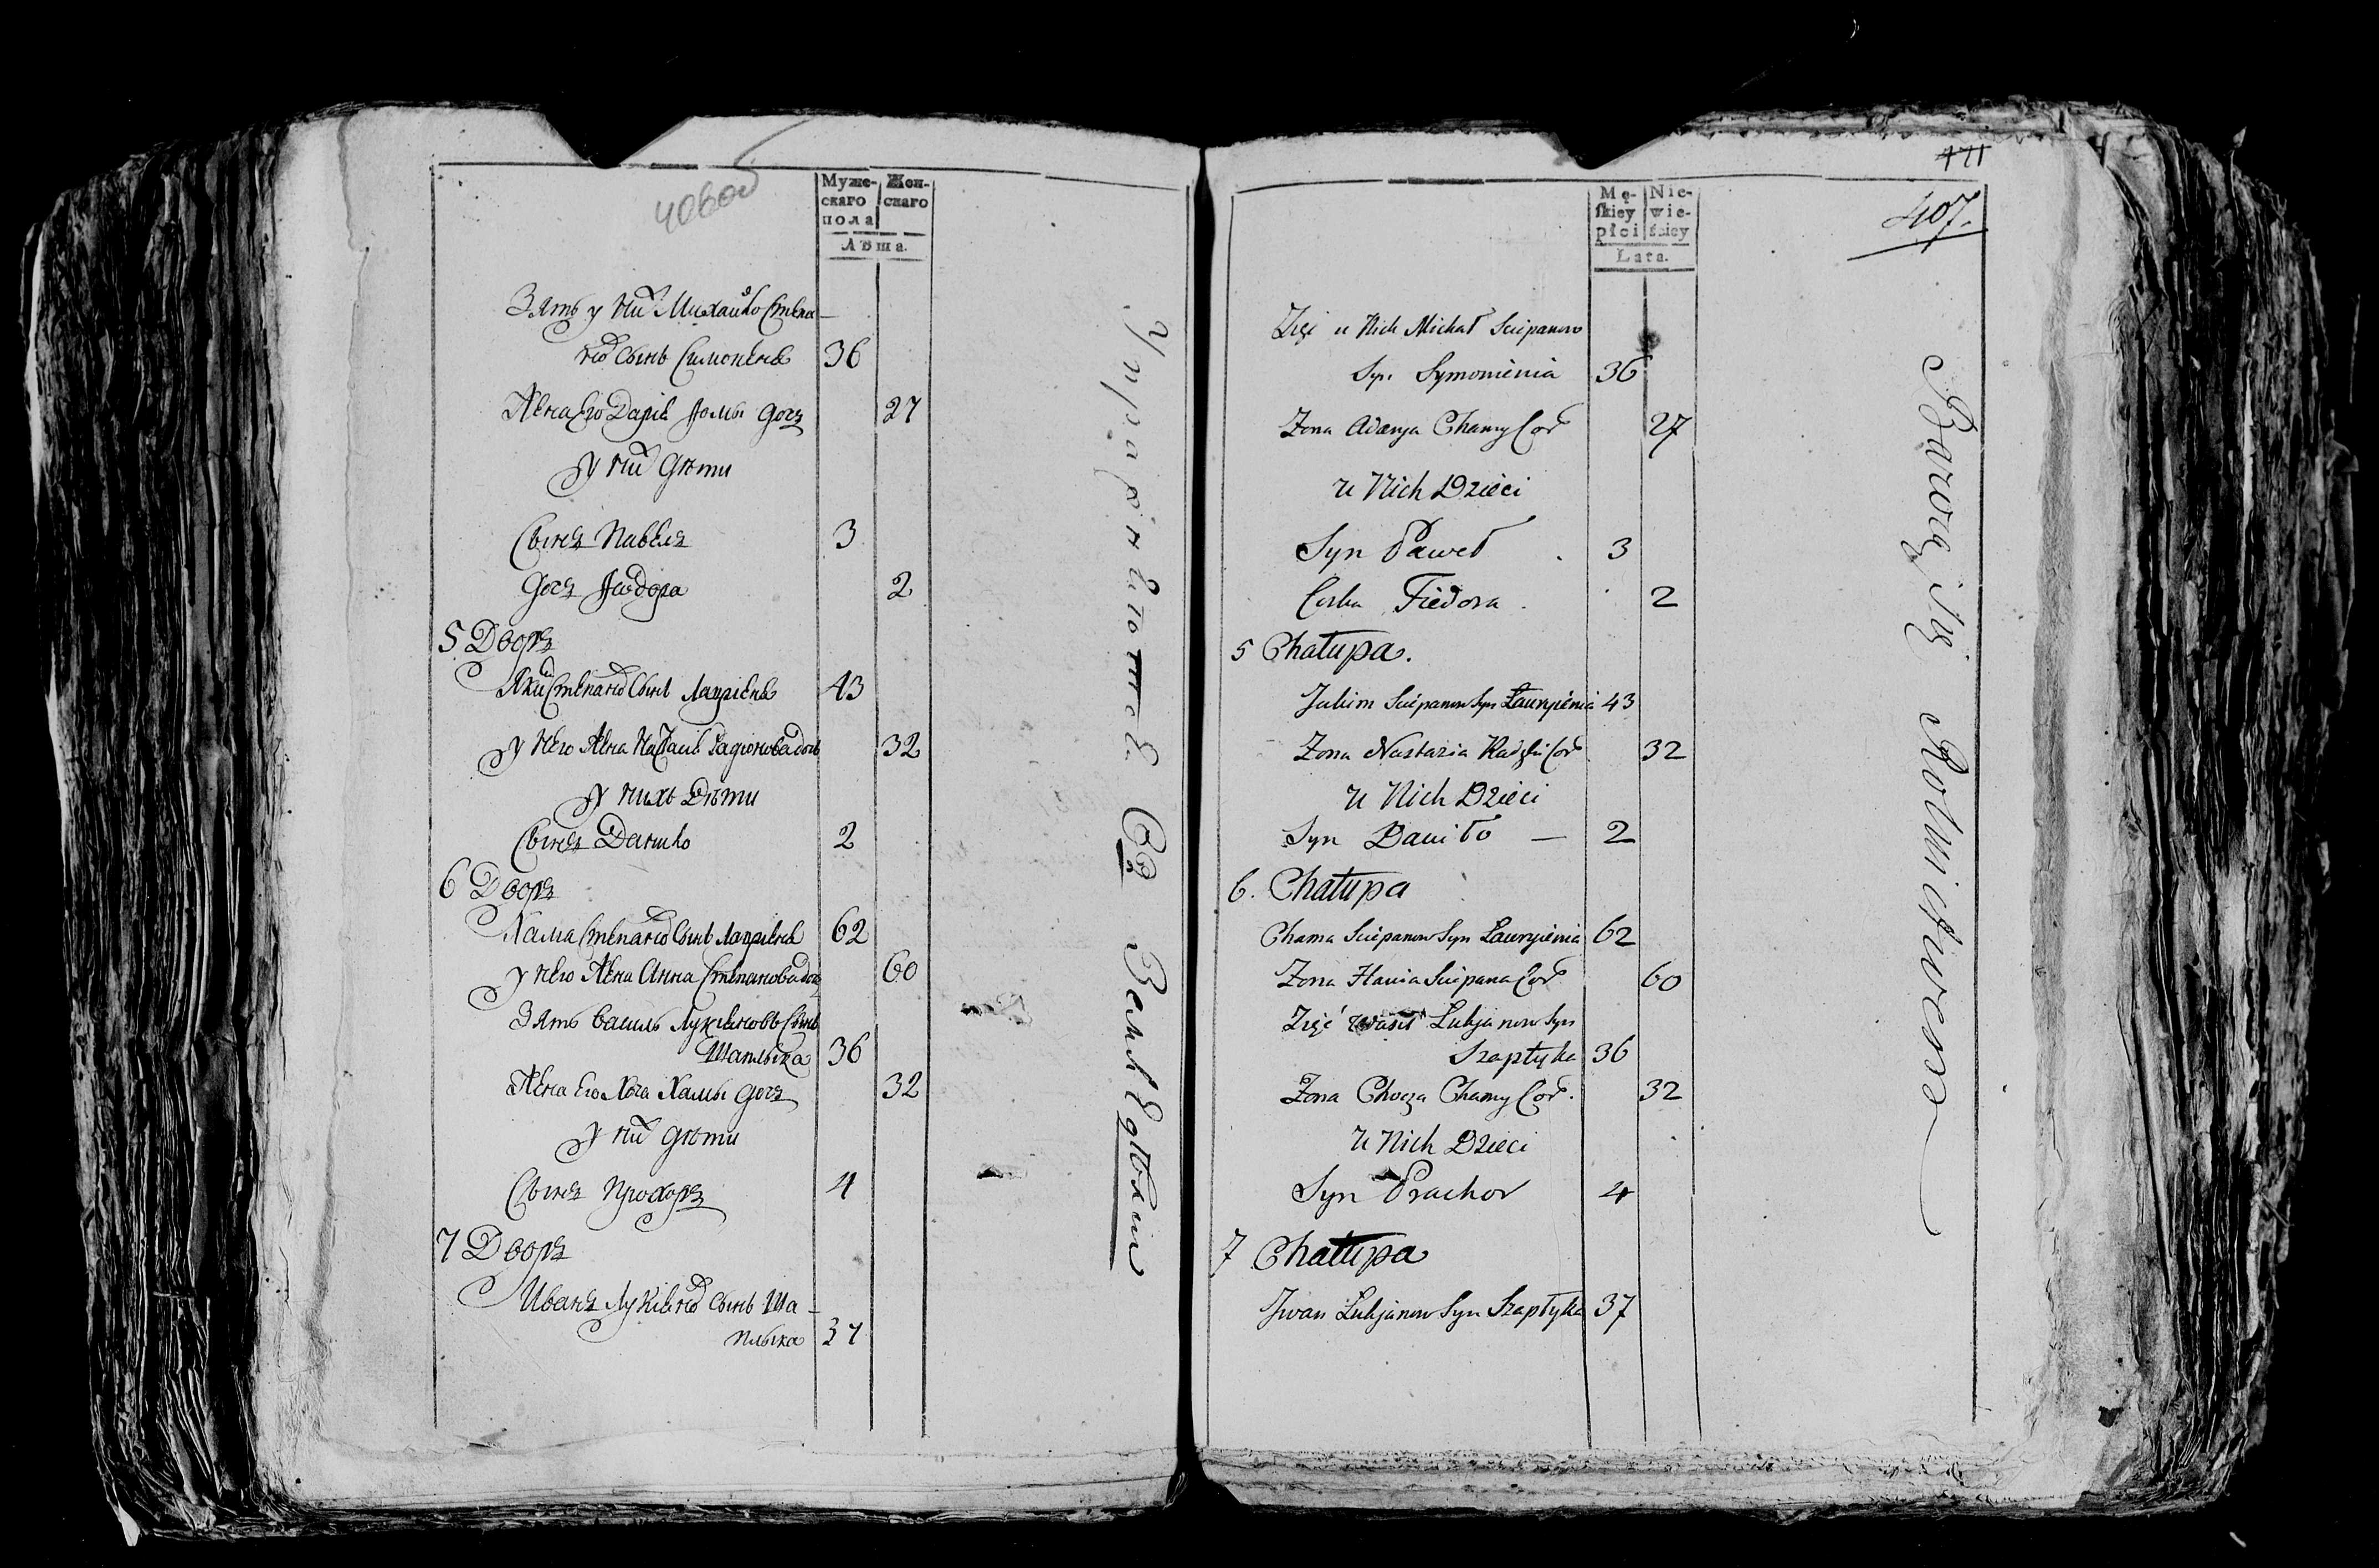 406об
Муже-
скаго
пола
Жен-
скаго
Лѣта.
Зять у них Михайло Степа-
нов сынъ Симоненя 36
Жена Его Дарія Хомы дочъ 27
у них дѣти
Сынъ Павелъ 3
дочъ Федора 2
5 Дворъ
Яким Степанов Сынъ Лаврыеня 43
у него Жена Настасія Радионова дочь 32
у нихъ Дѣти
Сынъ Данило 2
6 Дворъ
Хама Степанов Сынъ Лаврыеня 62
у него Жена Анна Степанова дочь 60
Зять Василь Лукьяновъ Сынъ
Шаплыка 36
Жена Его Хвеа Хамы дочъ 32
у них дѣти
Сынъ Прохоръ 4
7 Дворъ
Иванъ Лукьянов сынъ Ша-
плыка 37
Управитель
Землі
171
407.
Mę-
skiey
płci
Nie-
wie-
ściey
Lata.
Zięć u Nich Michał Sciepanow
Syn Symonienia 36
Zona Adarya Chamy Cor 27
u Nich Dzieci
Syn Paweł 3
Corka Fiedora 2
5 Chałupa.
Jakim Sciepanow SynŁawrynienia 43
Zona Nastazia Cor 32
u Nich Dzieci
Syn Daniło — 2
6. Chałupa
Chama Sciepanow Syn Ławrynienia 62
Zona Hania Sciepana Cor 60
Zięć Wasil Lukjanow Syn
Szapłyka 36
Zona Chwezia Chamy Cor. 32
u Nich Dzieci
Syn Prachor 4
7 Chałupa
Jwan Lukjanow Syn Szapłyka 37